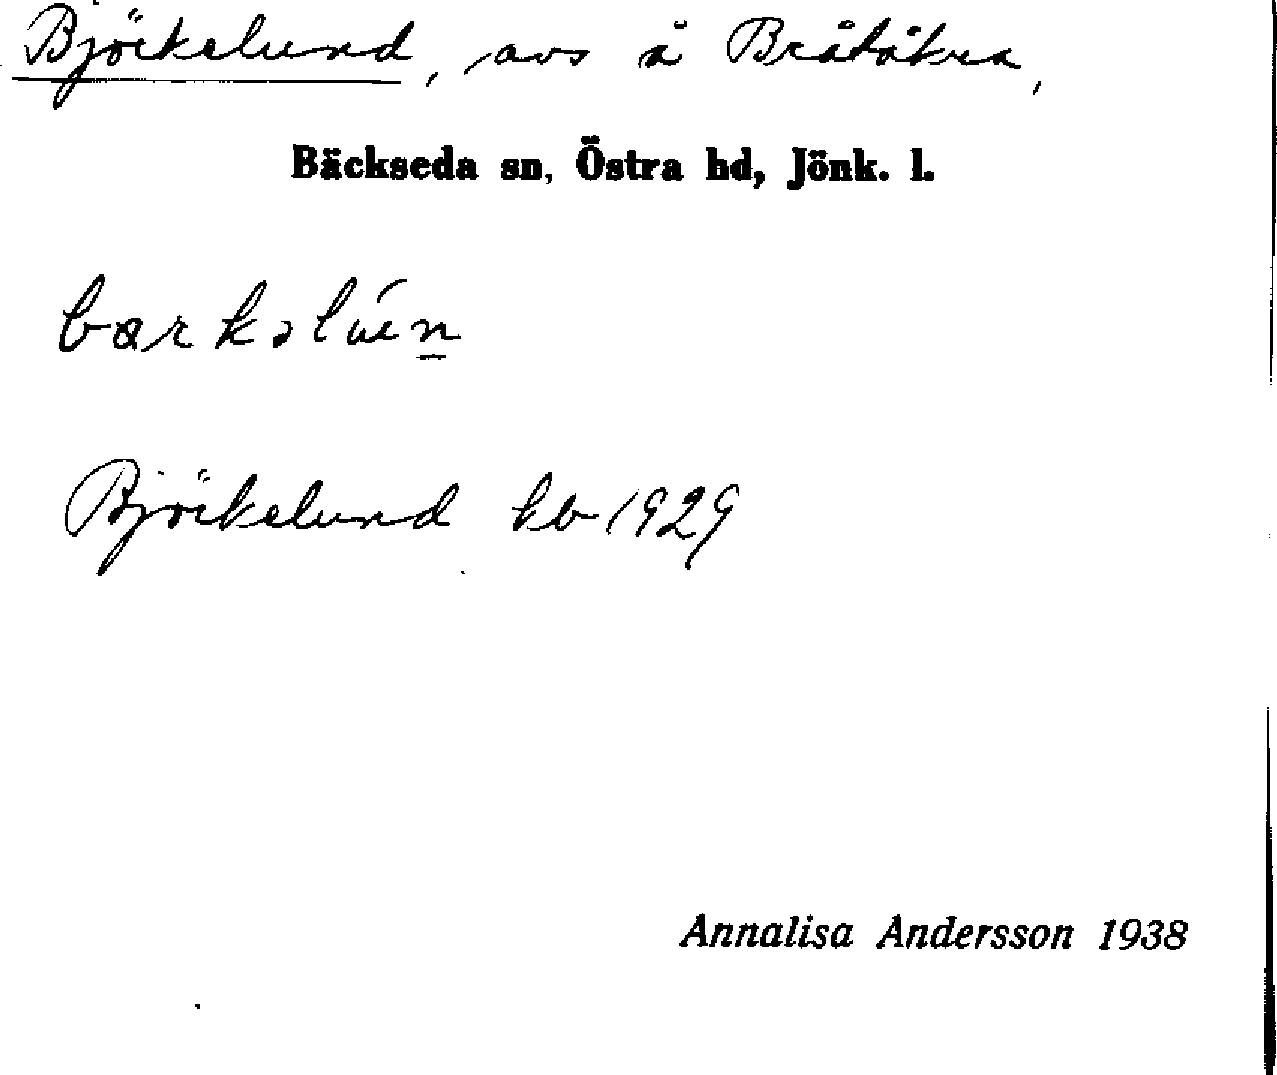 Björkelund, avs å Bråtåkra,
Bäckseda sn, Östra hd, Jönk. l.
Björkelund kb 1929
Annalisa Andersson 1938